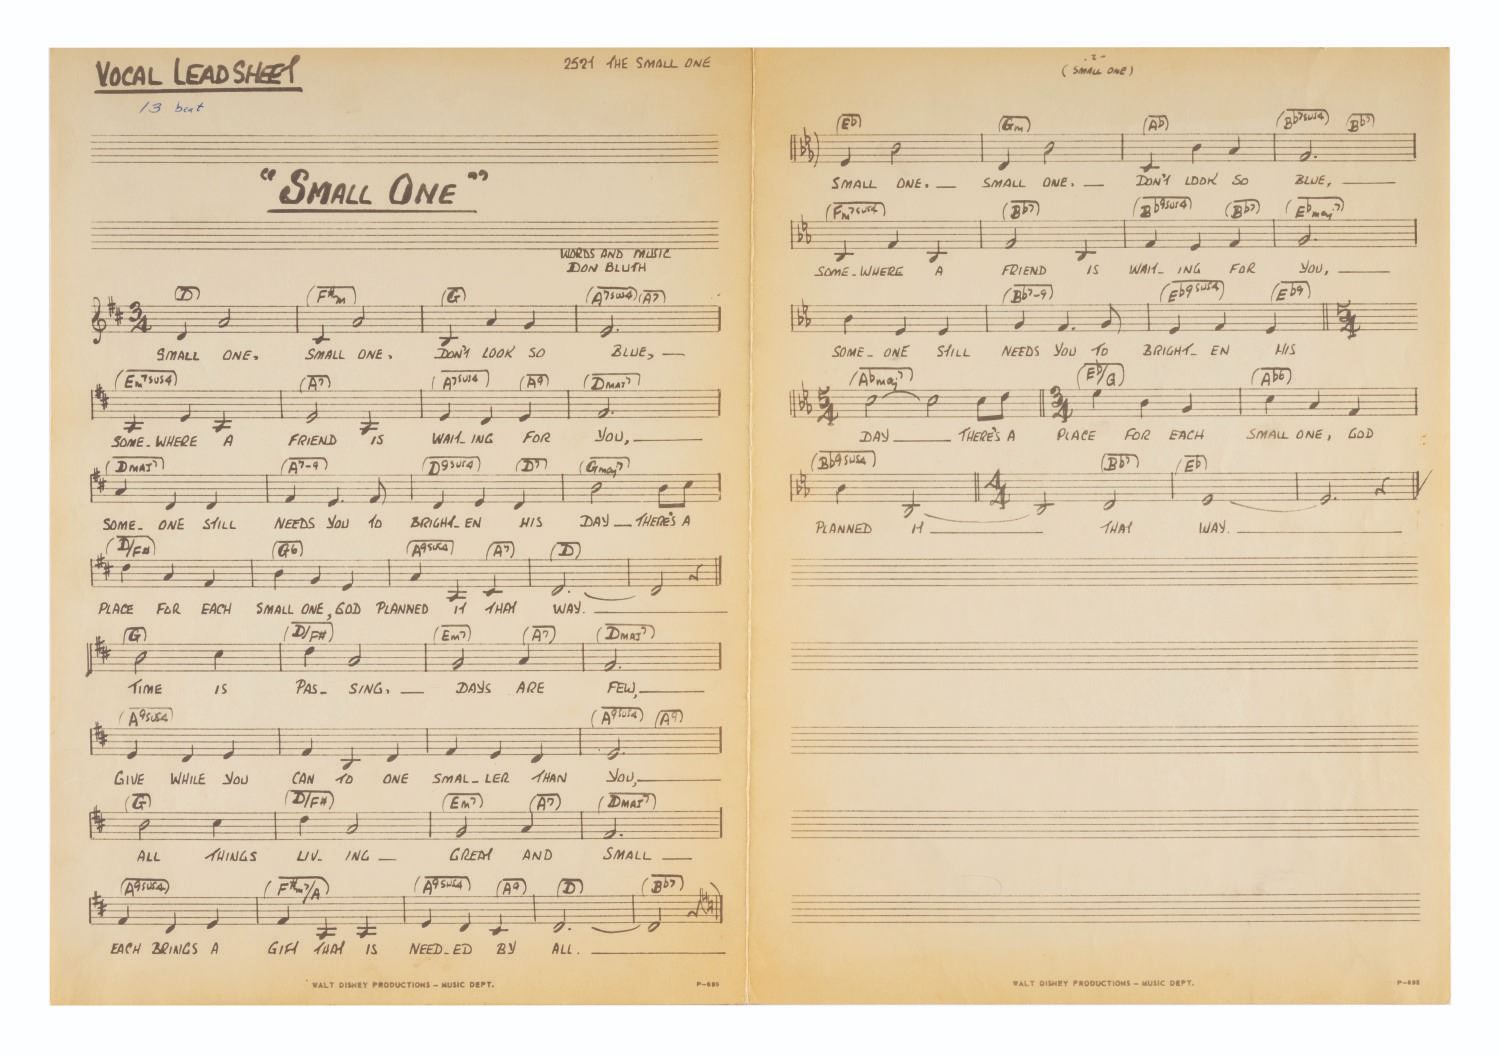 VOCAL LEADSHEET
2521 THE SMALL ONE
13 beat
"SMALL ONE"
WORDS AND MUSIC
DON BLUTH
D F#m G A7sus4 A7
3/4
SMALL ONE. SMALL ONE. DON'T LOOK SO BLUE, —
Em7sus4 A7 A7sus4 A9 Dmaj7
SOME-WHERE A FRIEND IS WAIT-ING FOR YOU, —
Dmaj7 A7-9 D9sus4 D7 Gmaj7
SOME- ONE STILL NEEDS YOU TO BRIGHT-EN HIS DAY — THERE'S A
D/F# G6 A9sus4 A7 D
PLACE FOR EACH SMALL ONE, GOD PLANNED IT THAT WAY. —
G D/F# Em7 A7 Dmaj7
TIME IS PAS- SING. — DAYS ARE FEW, —
A9sus4 A9sus4 A9
GIVE WHILE YOU CAN TO ONE SMAL-LER THAN YOU, —
G D/F# Em7 A7 Dmaj7
ALL THINGS LIV- ING — GREAT AND SMALL —
A9sus4 F#m7/A A9sus4 A9 D Bb7
EACH BRINGS A GIFT THAT IS NEED-ED BY ALL. —
WALT DISNEY PRODUCTIONS – MUSIC DEPT.
P-695
-2-
(SMALL ONE)
Eb Gm Ab Bb7sus4 Bb7
SMALL ONE. — SMALL ONE. — DON'T LOOK SO BLUE, —
Fm7sus4 Bb7 Bb9sus4 Bb7 Ebmaj7
SOME-WHERE A FRIEND IS WAIT- ING FOR YOU, —
Bb7-9 Eb9sus4 Eb9
3/4
SOME- ONE STILL NEEDS YOU TO BRIGHT- EN HIS
Abmaj7 Eb/G Ab6
5/4 3/4
DAY — THERE'S A PLACE FOR EACH SMALL ONE, GOD
Bb9sus4 Bb7 Eb
4/4
PLANNED IT — THAT WAY. —
WALT DISNEY PRODUCTIONS – MUSIC DEPT.